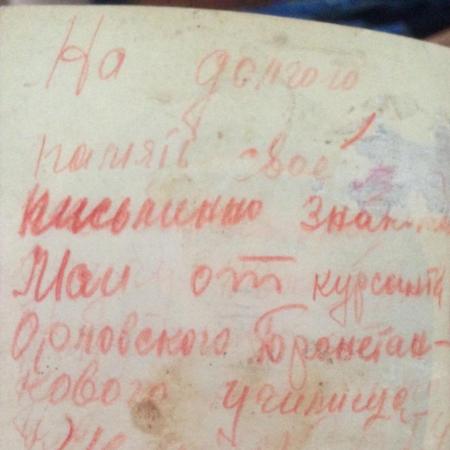 На долгою
память свое
письменно знаком
Маи от курсанта
Орловского Бронетан-
кового училища